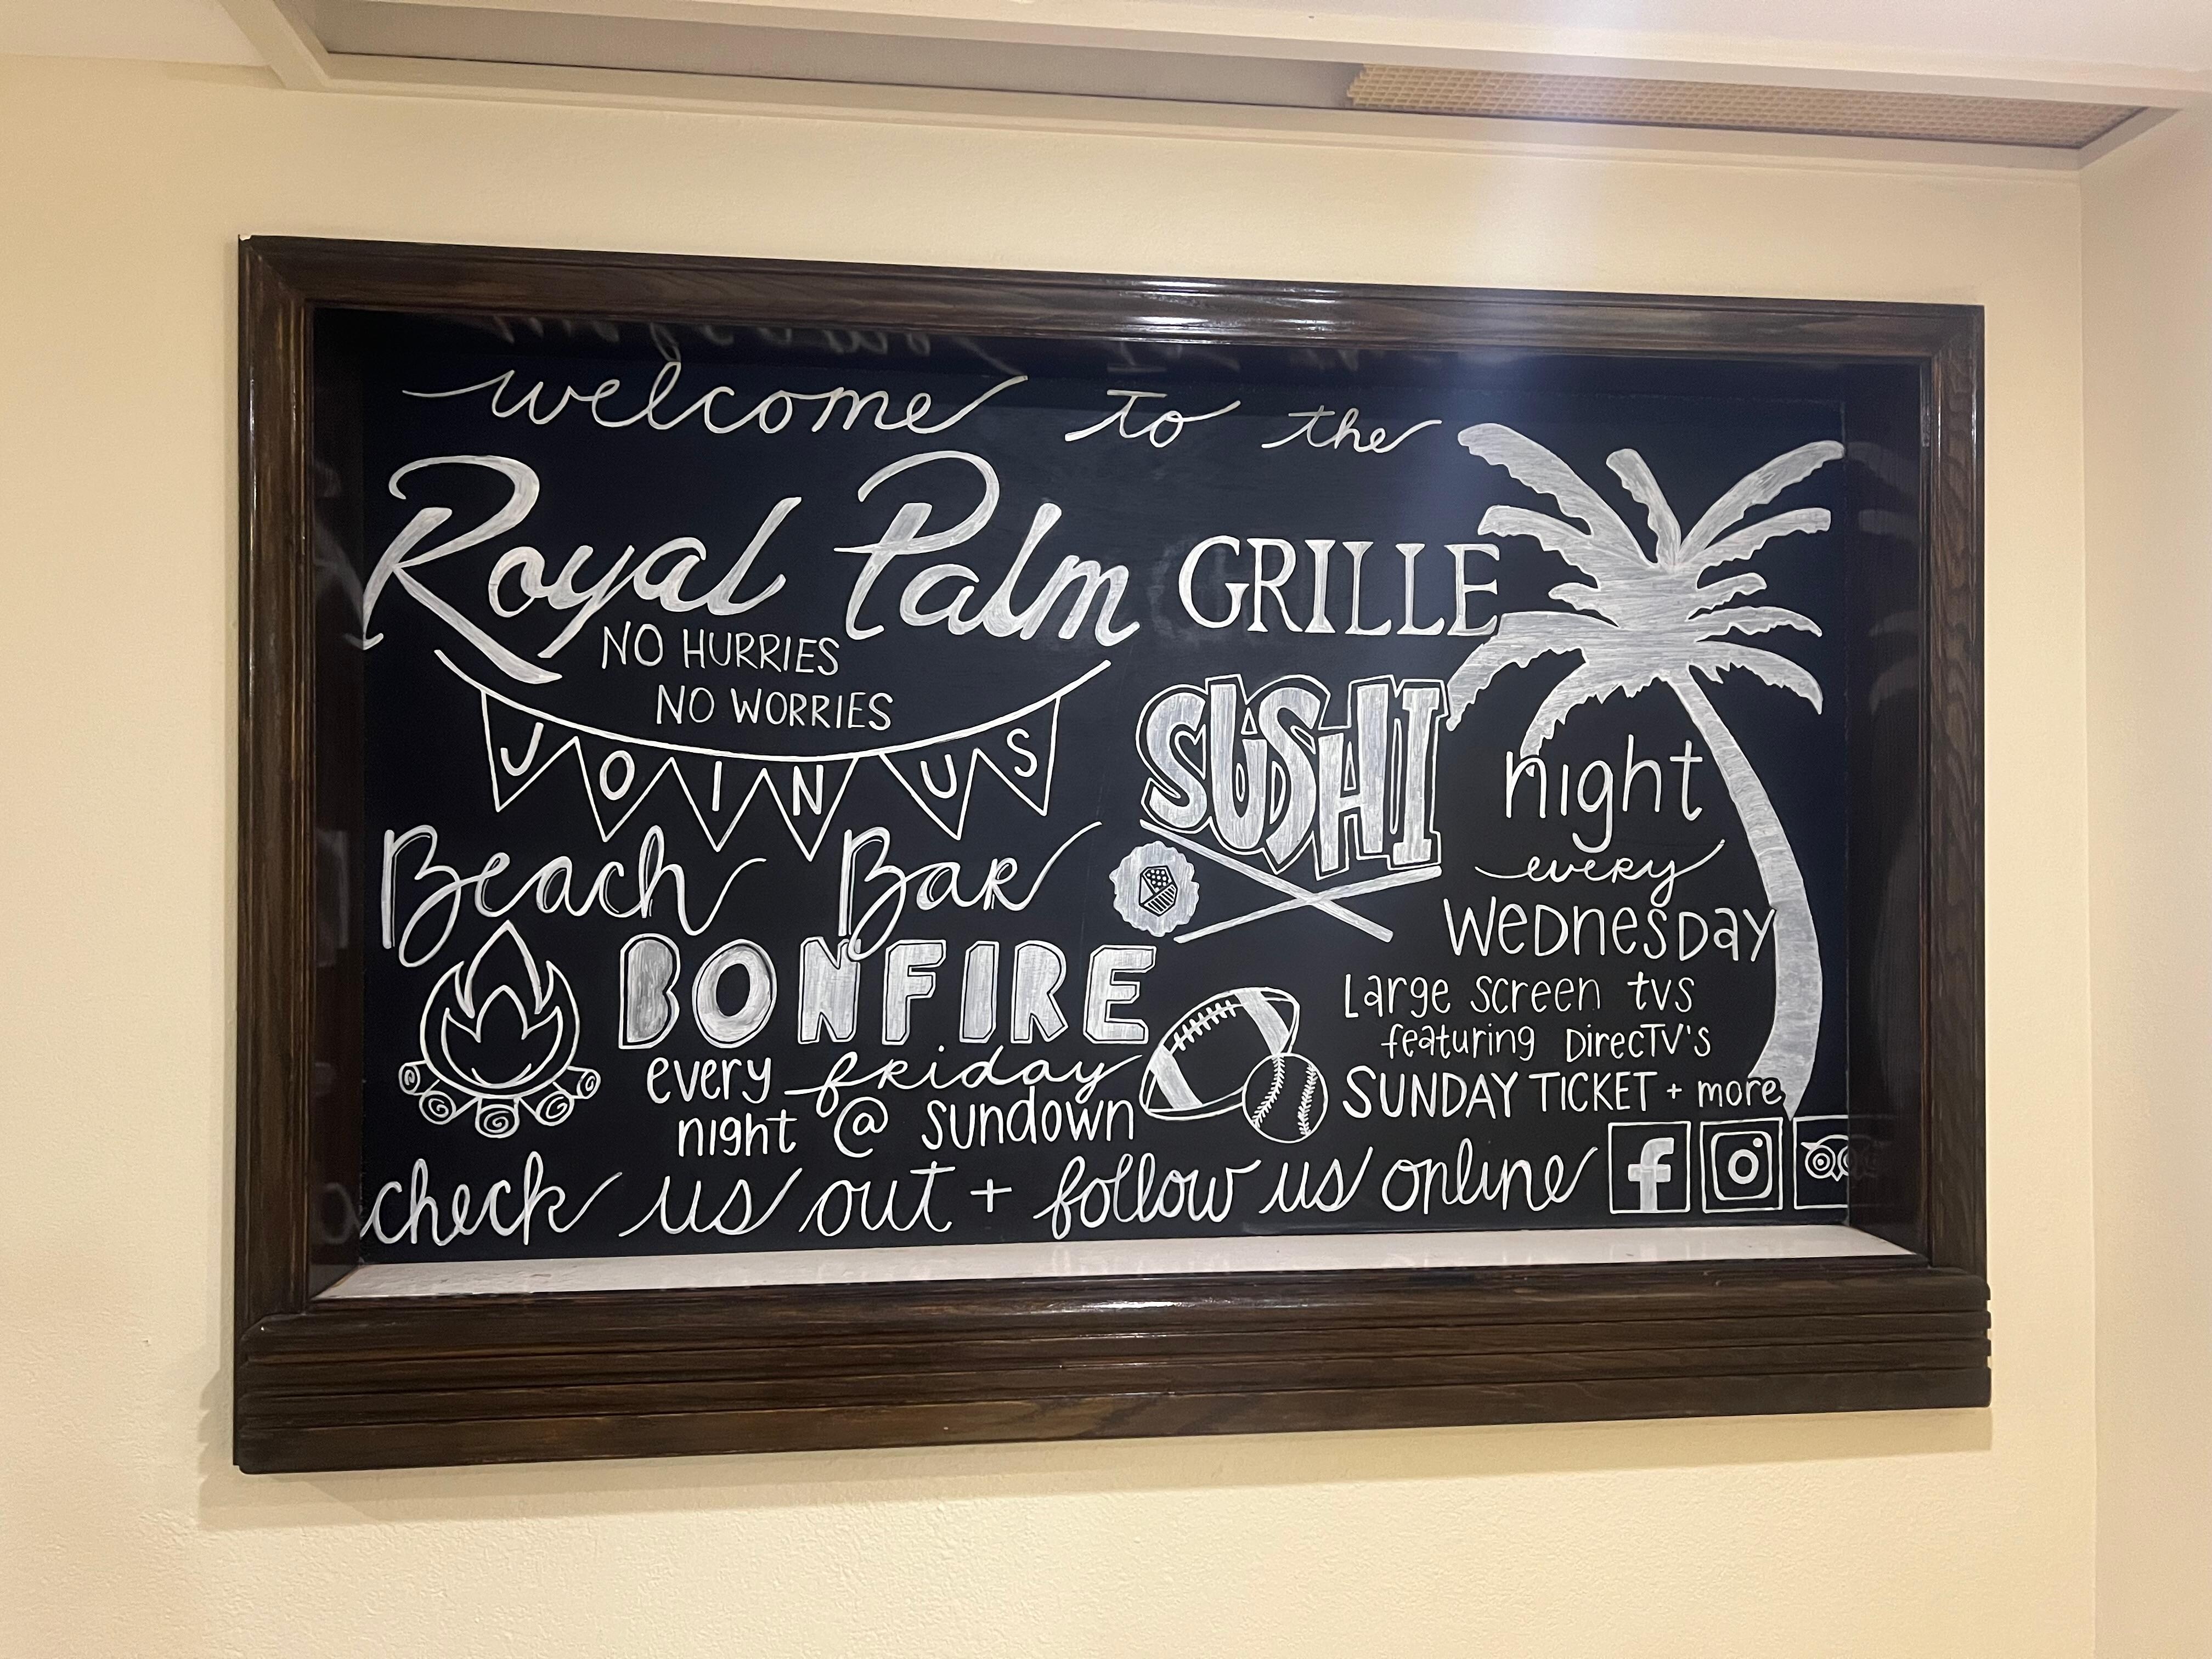 welcome to the
Royal Palm GRILLE
NO HURRIES
NO WORRIES
JOIN US
Beach Bar
BONFIRE
every friday
night @ sundown
SUSHI night
every
Wednesday
Large screen tvs
featuring DirecTV's
SUNDAY TICKET + more
check us out + follow us online